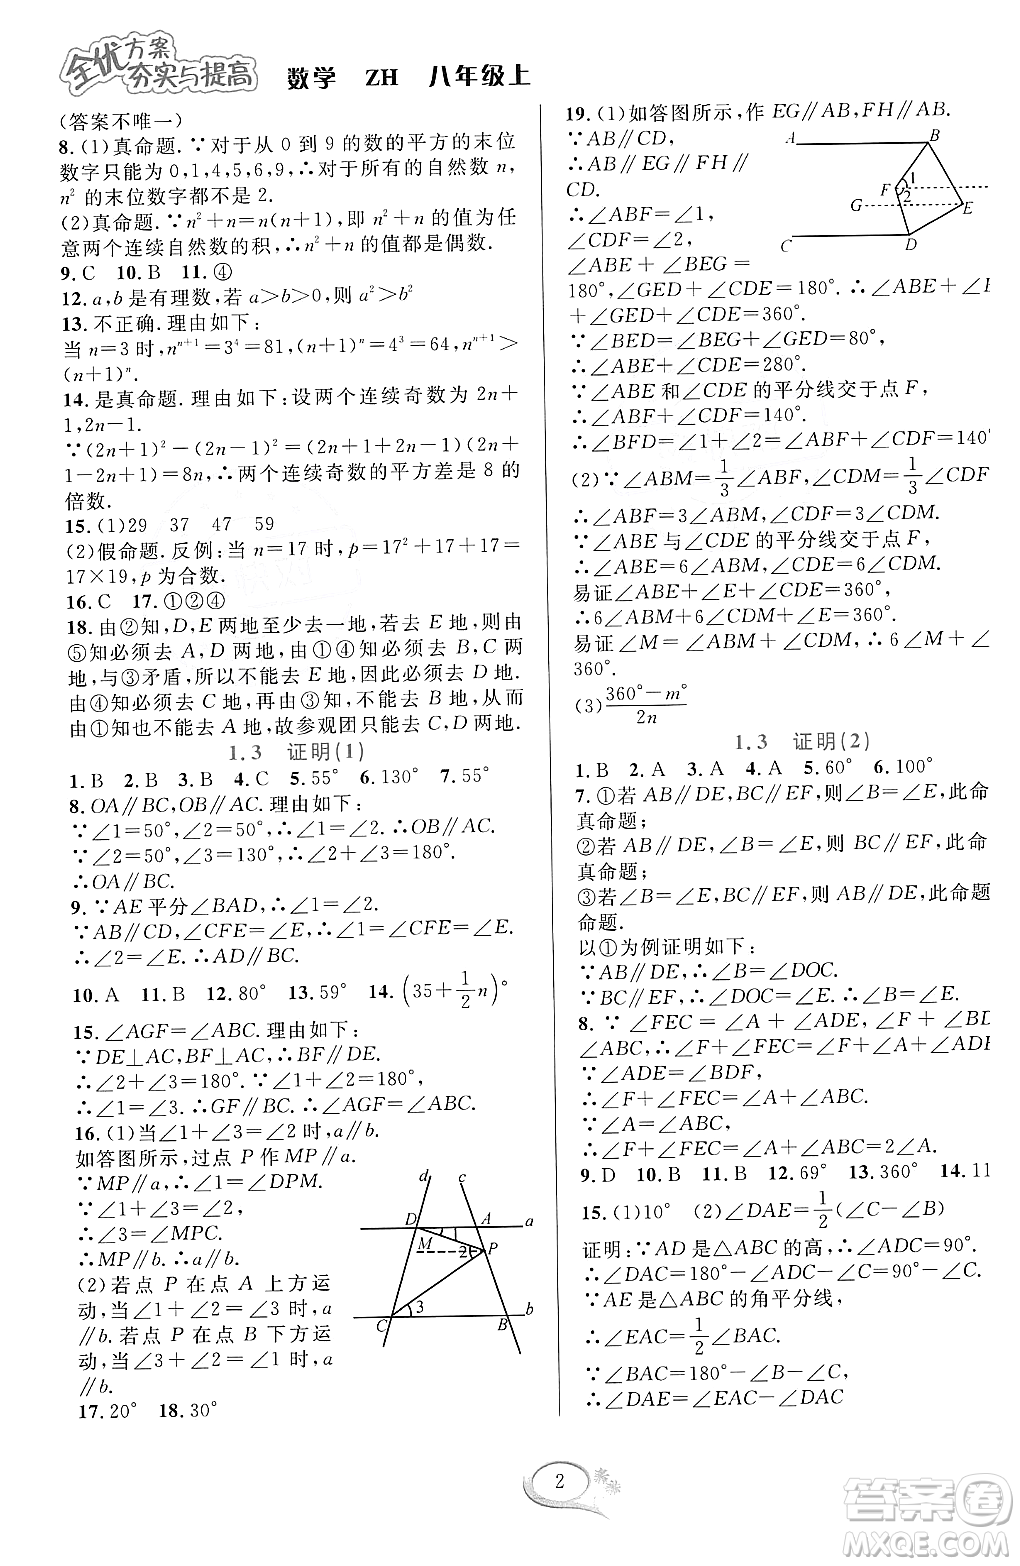 全优方案
夯实与提高
数学 ZH 八年级上
(答案不唯一)
8.(1)真命题.∵对于从 0 到 9 的数的平方的末位
数字只能为 0,1,4,5,6,9,∴对于所有的自然数 n,
n² 的末位数字都不是 2.
(2)真命题.∵n²+n=n(n+1),即 n²+n 的值为任
意两个连续自然数的积,∴n²+n 的值都是偶数.
9.C 10.B 11.④
12.a,b 是有理数,若 a>b>0,则 a²>b²
13.不正确.理由如下:
当 n=3 时,nⁿ⁺¹=3⁴=81,(n+1)ⁿ=4³=64,nⁿ⁺¹>
(n+1)ⁿ.
14.是真命题.理由如下:设两个连续奇数为 2n+
1,2n-1.
∵(2n+1)²-(2n-1)²=(2n+1+2n-1)(2n+
1-2n+1)=8n,∴两个连续奇数的平方差是 8 的
倍数.
15.(1)29 37 47 59
(2)假命题.反例:当 n=17 时,p=17²+17+17=
17×19,p 为合数.
16.C 17.①②④
18.由②知,D,E 两地至少去一地,若去 E 地,则由
⑤知必须去 A,D 两地;由①④知必须去 B,C 两
地,与③矛盾,所以不能去 E 地,因此必须去 D 地.
由④知必须去 C 地,再由③知,不能去 B 地,从而
由①知也不能去 A 地,故参观团只能去 C,D 两地.
1.3 证明(1)
1.B 2.B 3.B 4.C 5.55° 6.130° 7.55°
8.OA∥BC,OB∥AC.理由如下:
∵∠1=50°,∠2=50°,∴∠1=∠2.∴OB∥AC.
∵∠2=50°,∠3=130°,∴∠2+∠3=180°.
∴OA∥BC.
9.∵AE平分∠BAD,∴∠1=∠2.
∵AB∥CD,∠CFE=∠E,∴∠1=∠CFE=∠E.
∴∠2=∠E.∴AD∥BC.
10.A 11.B 12.80° 13.59° 14.(35+1/2n)°
15.∠AGF=∠ABC.理由如下:
∵DE⊥AC,BF⊥AC,∴BF∥DE.
∴∠2+∠3=180°.∵∠1+∠2=180°,
∴∠1=∠3.∴GF∥BC.∴∠AGF=∠ABC.
16.(1)当∠1+∠3=∠2时,a∥b.
如答图所示,过点 P 作 MP∥a.
∵MP∥a,∴∠1=∠DPM.
∵∠1+∠3=∠2,
∴∠3=∠MPC.
∴MP∥b.∴a∥b.
(2)若点 P 在点 A 上方运
动,当∠1+∠2=∠3 时,a
∥b.若点 P 在点 B 下方运
动,当∠3+∠2=∠1 时,
a∥b.
d c
D A a
M P
2
3
C B b
17.20° 18.30°
19.(1)如答图所示,作 EG∥AB,FH∥AB.
∵AB∥CD,
∴AB∥EG∥FH∥
CD.
∴∠ABF=∠1,
∠CDF=∠2,
∠ABE+∠BEG=
A B
F 1
2
G E
C D
180°,∠GED+∠CDE=180°.∴∠ABE+∠B
+∠GED+∠CDE=360°.
∵∠BED=∠BEG+∠GED=80°,
∴∠ABE+∠CDE=280°.
∵∠ABE 和∠CDE的平分线交于点 F,
∴∠ABF+∠CDF=140°.
∴∠BFD=∠1+∠2=∠ABF+∠CDF=140°
(2)∵∠ABM=1/3∠ABF,∠CDM=1/3∠CDF
∴∠ABF=3∠ABM,∠CDF=3∠CDM.
∵∠ABE与∠CDE的平分线交于点 F,
∴∠ABE=6∠ABM,∠CDE=6∠CDM.
易证∠ABE+∠E+∠CDE=360°,
∴6∠ABM+6∠CDM+∠E=360°.
易证∠M=∠ABM+∠CDM,∴6∠M+∠
360°.
(3)(360°-m°)/2n
1.3 证明(2)
1.B 2.A 3.A 4.A 5.60° 6.100°
7.①若 AB∥DE,BC∥EF,则∠B=∠E,此命
真命题;
②若 AB∥DE,∠B=∠E,则 BC∥EF,此命
真命题;
③若∠B=∠E,BC∥EF,则 AB∥DE,此命题
命题.
以①为例证明如下:
∵AB∥DE,∴∠B=∠DOC.
∵BC∥EF,∴∠DOC=∠E.∴∠B=∠E.
8.∵∠FEC=∠A+∠ADE,∠F+∠BD
∠ABC,∴∠F+∠FEC=∠F+∠A+∠ADE
∵∠ADE=∠BDF,
∴∠F+∠FEC=∠A+∠ABC.
∵∠A=∠ABC,
∴∠F+∠FEC=∠A+∠ABC=2∠A.
9.D 10.B 11.B 12.69° 13.360° 14.11
15.(1)10° (2)∠DAE=1/2(∠C-∠B)
证明:∵AD 是△ABC 的高,∴∠ADC=90°.
∴∠DAC=180°-∠ADC-∠C=90°-∠C.
∵AE是△ABC的角平分线,
∴∠EAC=1/2∠BAC.
∵∠BAC=180°-∠B-∠C,
∴∠DAE=∠EAC-∠DAC
2
答案圈
MXQE.COM